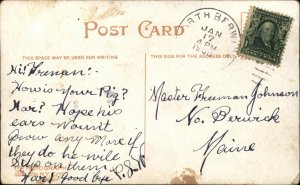 POST CARD
THIS SPACE MAY BE USED FOR WRITING
THIS SIDE FOR THE ADDRESS
NORTH BERWICK
JAN
17
PM
Hi! Freeman:-
How is Your Pig?
Har? Hope his
ears won't
grow any more if
they do he will
on them
Har! Good bye
Master Freeman Johnson
No. Berwick
Maine